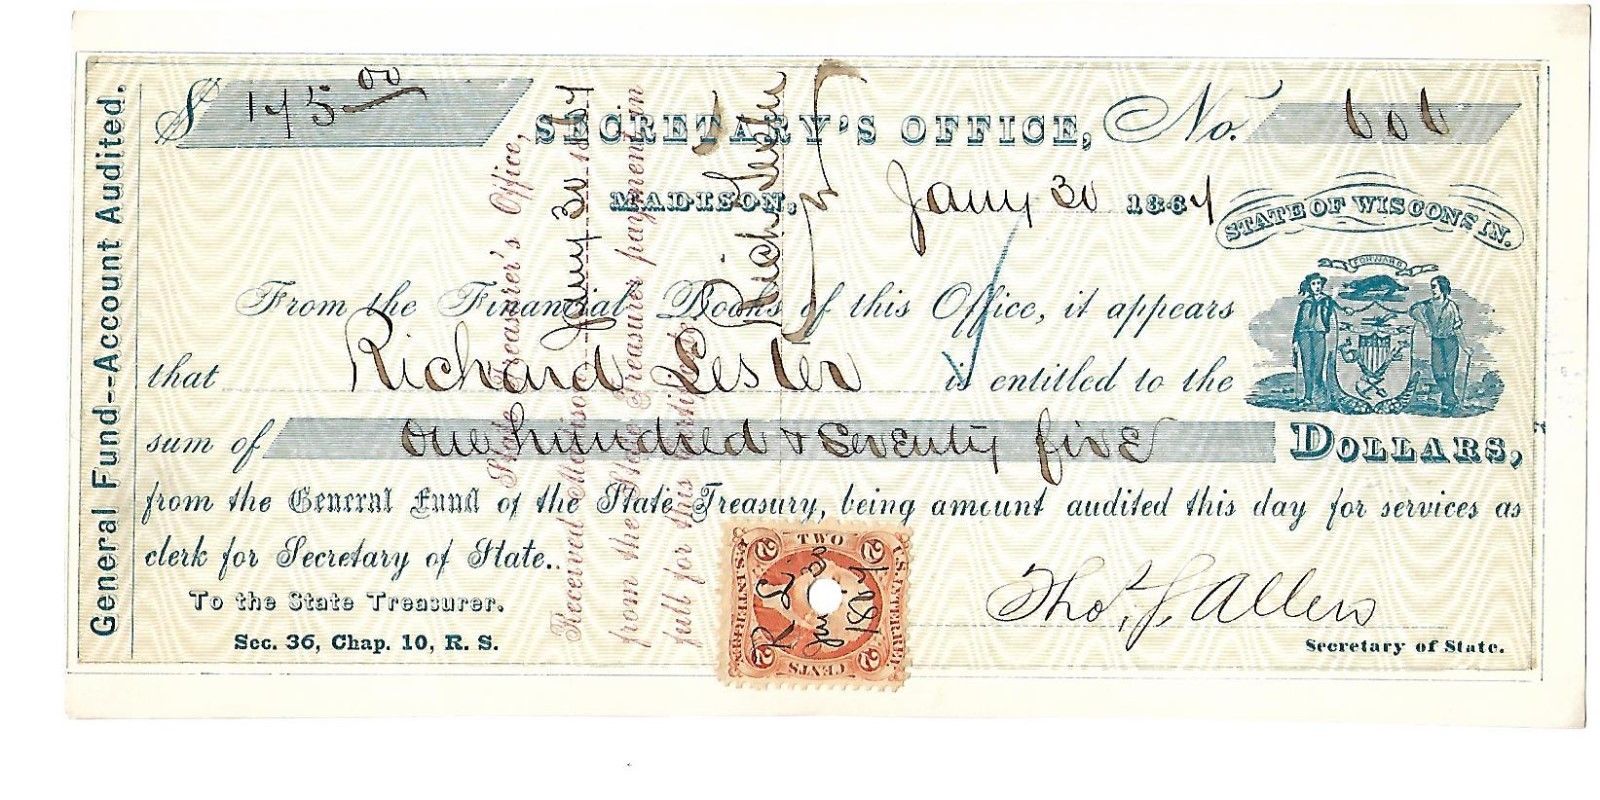 General Fund--Account Audited.
$ 175.00
SECRETARY'S OFFICE, No. 606
MADISON, Jany 30 1867
STATE OF WISCONSIN.
FORWARD
From the Financial Books of this Office, it appears
that Richard Lester is entitled to the
sum of One hundred & Seventy five DOLLARS,
from the General Fund of the State Treasury, being amount audited this day for services as
clerk for Secretary of State..
To the State Treasurer.
Sec. 36, Chap. 10, R. S.
Thos. S. Allen
Secretary of State.
State Treasurer's Office,
Received Madison Jany 30 1867
from the State Treasurer payment in
full for this certificate
Rich Lester
U.S. INTER. REV.
TWO
CENTS
2
2
2
2
R. L.
Jany 30
1867